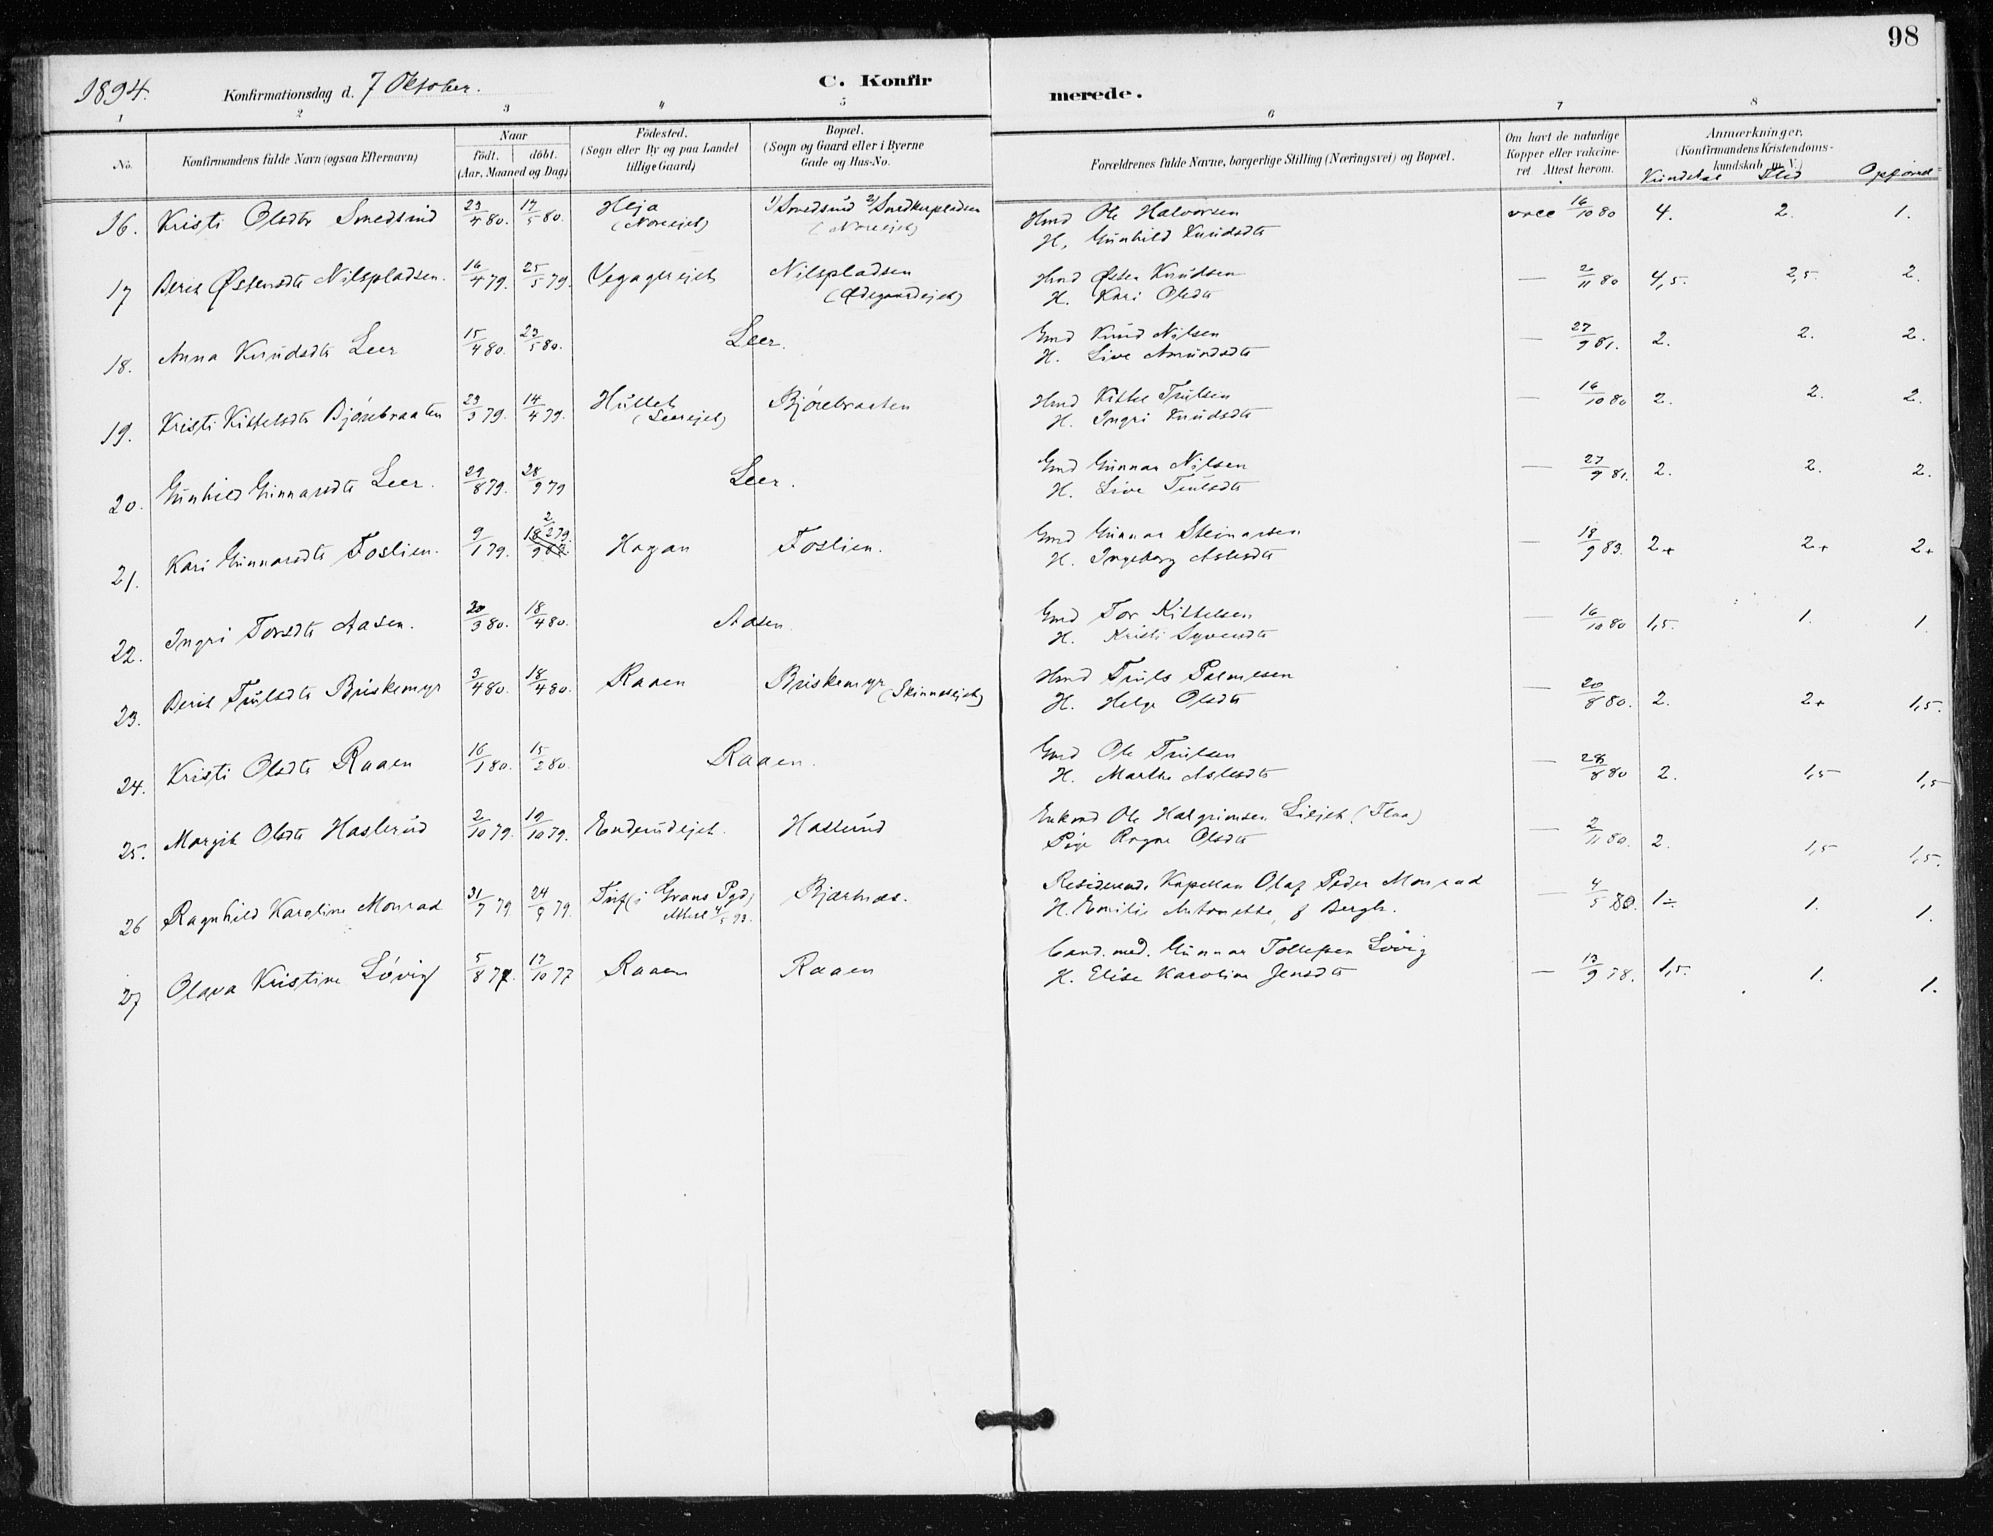 98
1894. Konfirmationsdag d. 7 Oktober. C. Konfirmerede.
1 2 3 4 5 6 7 8
No. Konfirmandens fulde Navn (ogsaa Efternavn) Naar födt. döbt. (Aar, Maaned og Dag) Födested. (Sogn eller By og paa Landet tillige Gaard) Bopæl. (Sogn og Gaard eller i Byerne Gade og Hus-No. Forældrenes fulde Navne, borgerlige Stilling (Næringsvei) og Bopæl. Om havt de naturlige Kopper eller vaccineret Attest herom. Anmærkninger. (Konfirmandens Kristendomskundskab m. V.) Kundskab Flid Opførsel
16. Kristi Olsdtr Smedsrud 23/4 80. 17/5 80. Heja (Noreejet) 1/ Smedsrud 2/ Snedkerpladsen (Noreejet) Hmd Ole Halvorsen vacc 16/10 80 4. 2. 1.
H. Gunhild Knudsdtr
17 Berit Østensdtr Nilspladsen. 16/4 79. 25/5 79. Vegagerejet Nilspladsen (Ødegaardsejet) Hmd Østen Knudsen — 2/11 80 4,5. 2,5. 2.
H. Kari Olsdtr
18. Anna Knudsdtr Leer 15/4 80. 23/5 80. Leer. Gmd Knud Nilsen — 27/9 81. 2. 2. 2.
H. Live Amundsdtr
19. Kristi Kittelsdtr Bjørebraaten 23/3 79. 14/4 79. Hullet (Leerejet) Bjørebraaten Hmd Kittel Trulsen — 16/10 80 2. 2. 2.
H. Ingri Knudsdtr
20. Gunhild Gunnarsdtr Leer. 29/8 79. 28/9 79 Leer. Gmd Gunnar Nilsen — 27/9 81. 2. 2. 2.
H. Live Trulsdtr
21. Kari Gunnarsdtr Foslien. 9/1 79. 2/2 79. Hagan Foslien. Gmd Gunnar Steinarsen — 18/9 83. 2+ 2+ 2+
H. Ingeborg Aslesdtr
22. Ingri Torsdtr Aasen. 20/3 80. 18/4 80. Aasen. Gmd Tor Kittelsen — 16/10 80 1,5. 1. 1.
H. Kristi Syversdtr
23. Berit Trulsdtr Briskemyr 3/4 80. 18/4 80. Raaen Briskemyr (Skinnesejet) Hmd Truls Palmesen — 20/8 80. 2. 2+ 1,5.
H. Helge Olsdtr
24. Kristi Olsdtr Raaen 16/1 80. 15/2 80. Raaen. Gmd Ole Trulsen — 28/8 80 2. 1,5 1,5
H. Marthe Aslesdtr
25. Margit Olsdtr Haslerud 2/10 79. 19/10 79. Enderudejet. Haslerud Enkmd Ole Halgrimsen Liejet (Flaa) — 2/11 80. 2. 1,5 1,5.
Pige Ragne Olsdtr
26 Ragnhild Karoline Monrad 31/7 79 24/9 79. (i Grans Pgd) Bjørtnæs. Residerende Kapellan Olaf Peder Monrad — 4/5 80. 1÷ 1. 1.
H. Emilie Antonette, f Bergh.
27 Olava Kristine Løvig 5/8 77. 17/10 77 Raaen Raaen Cand. med. Gunnar Tollefsen Løvig — 13/9 78. 1,5. 1. 1.
H. Elise Karoline Jensdtr